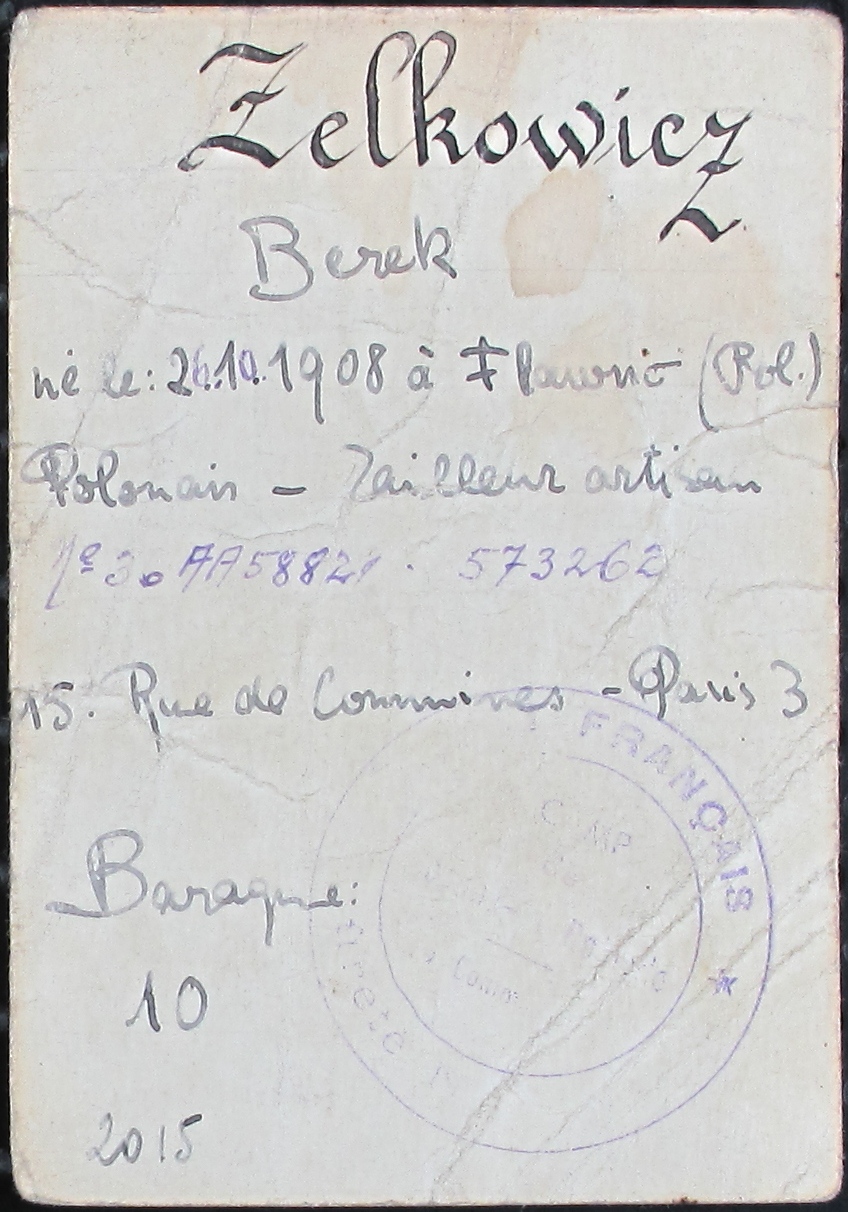 Zelkowicz
Berek
né le: 26.10.1908 à (Pol.)
Polonais - Tailleur artisan
573262
15. Rue de Commines - Paris 3
FRANÇAIS *
CAMP
Baraque:
10
2015